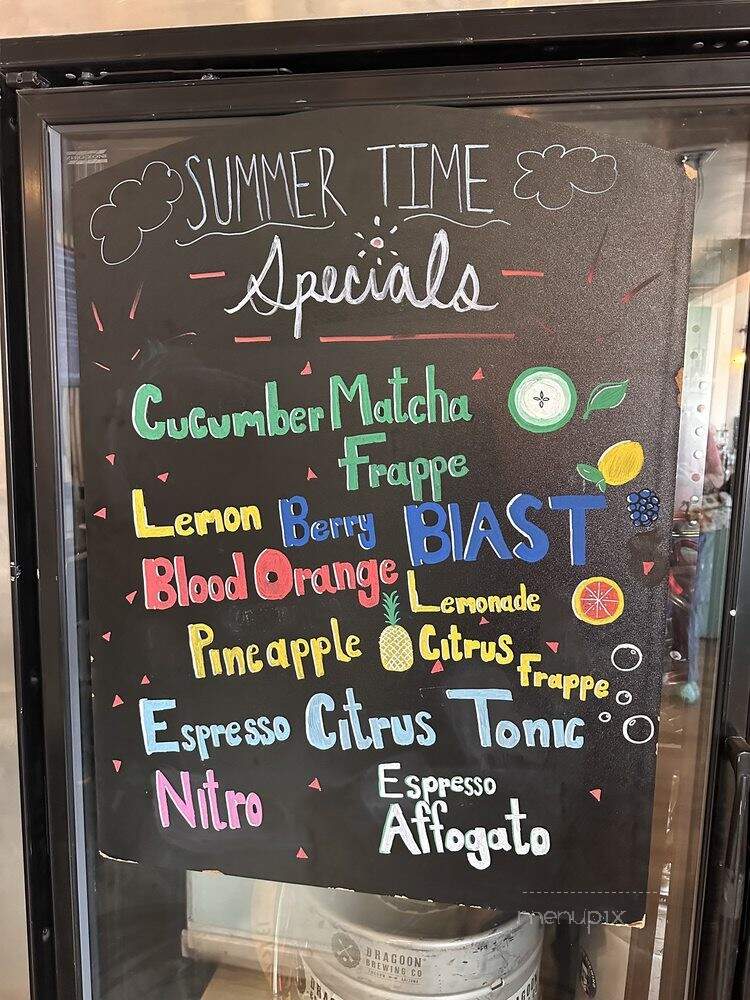 SUMMER TIME
Specials
Cucumber Matcha
Frappe
Lemon Berry BlAST
Blood Orange Lemonade
Pineapple Citrus Frappe
Espresso Citrus Tonic
Nitro
Espresso
Affogato
menupix
DRAGOON
BREWING CO